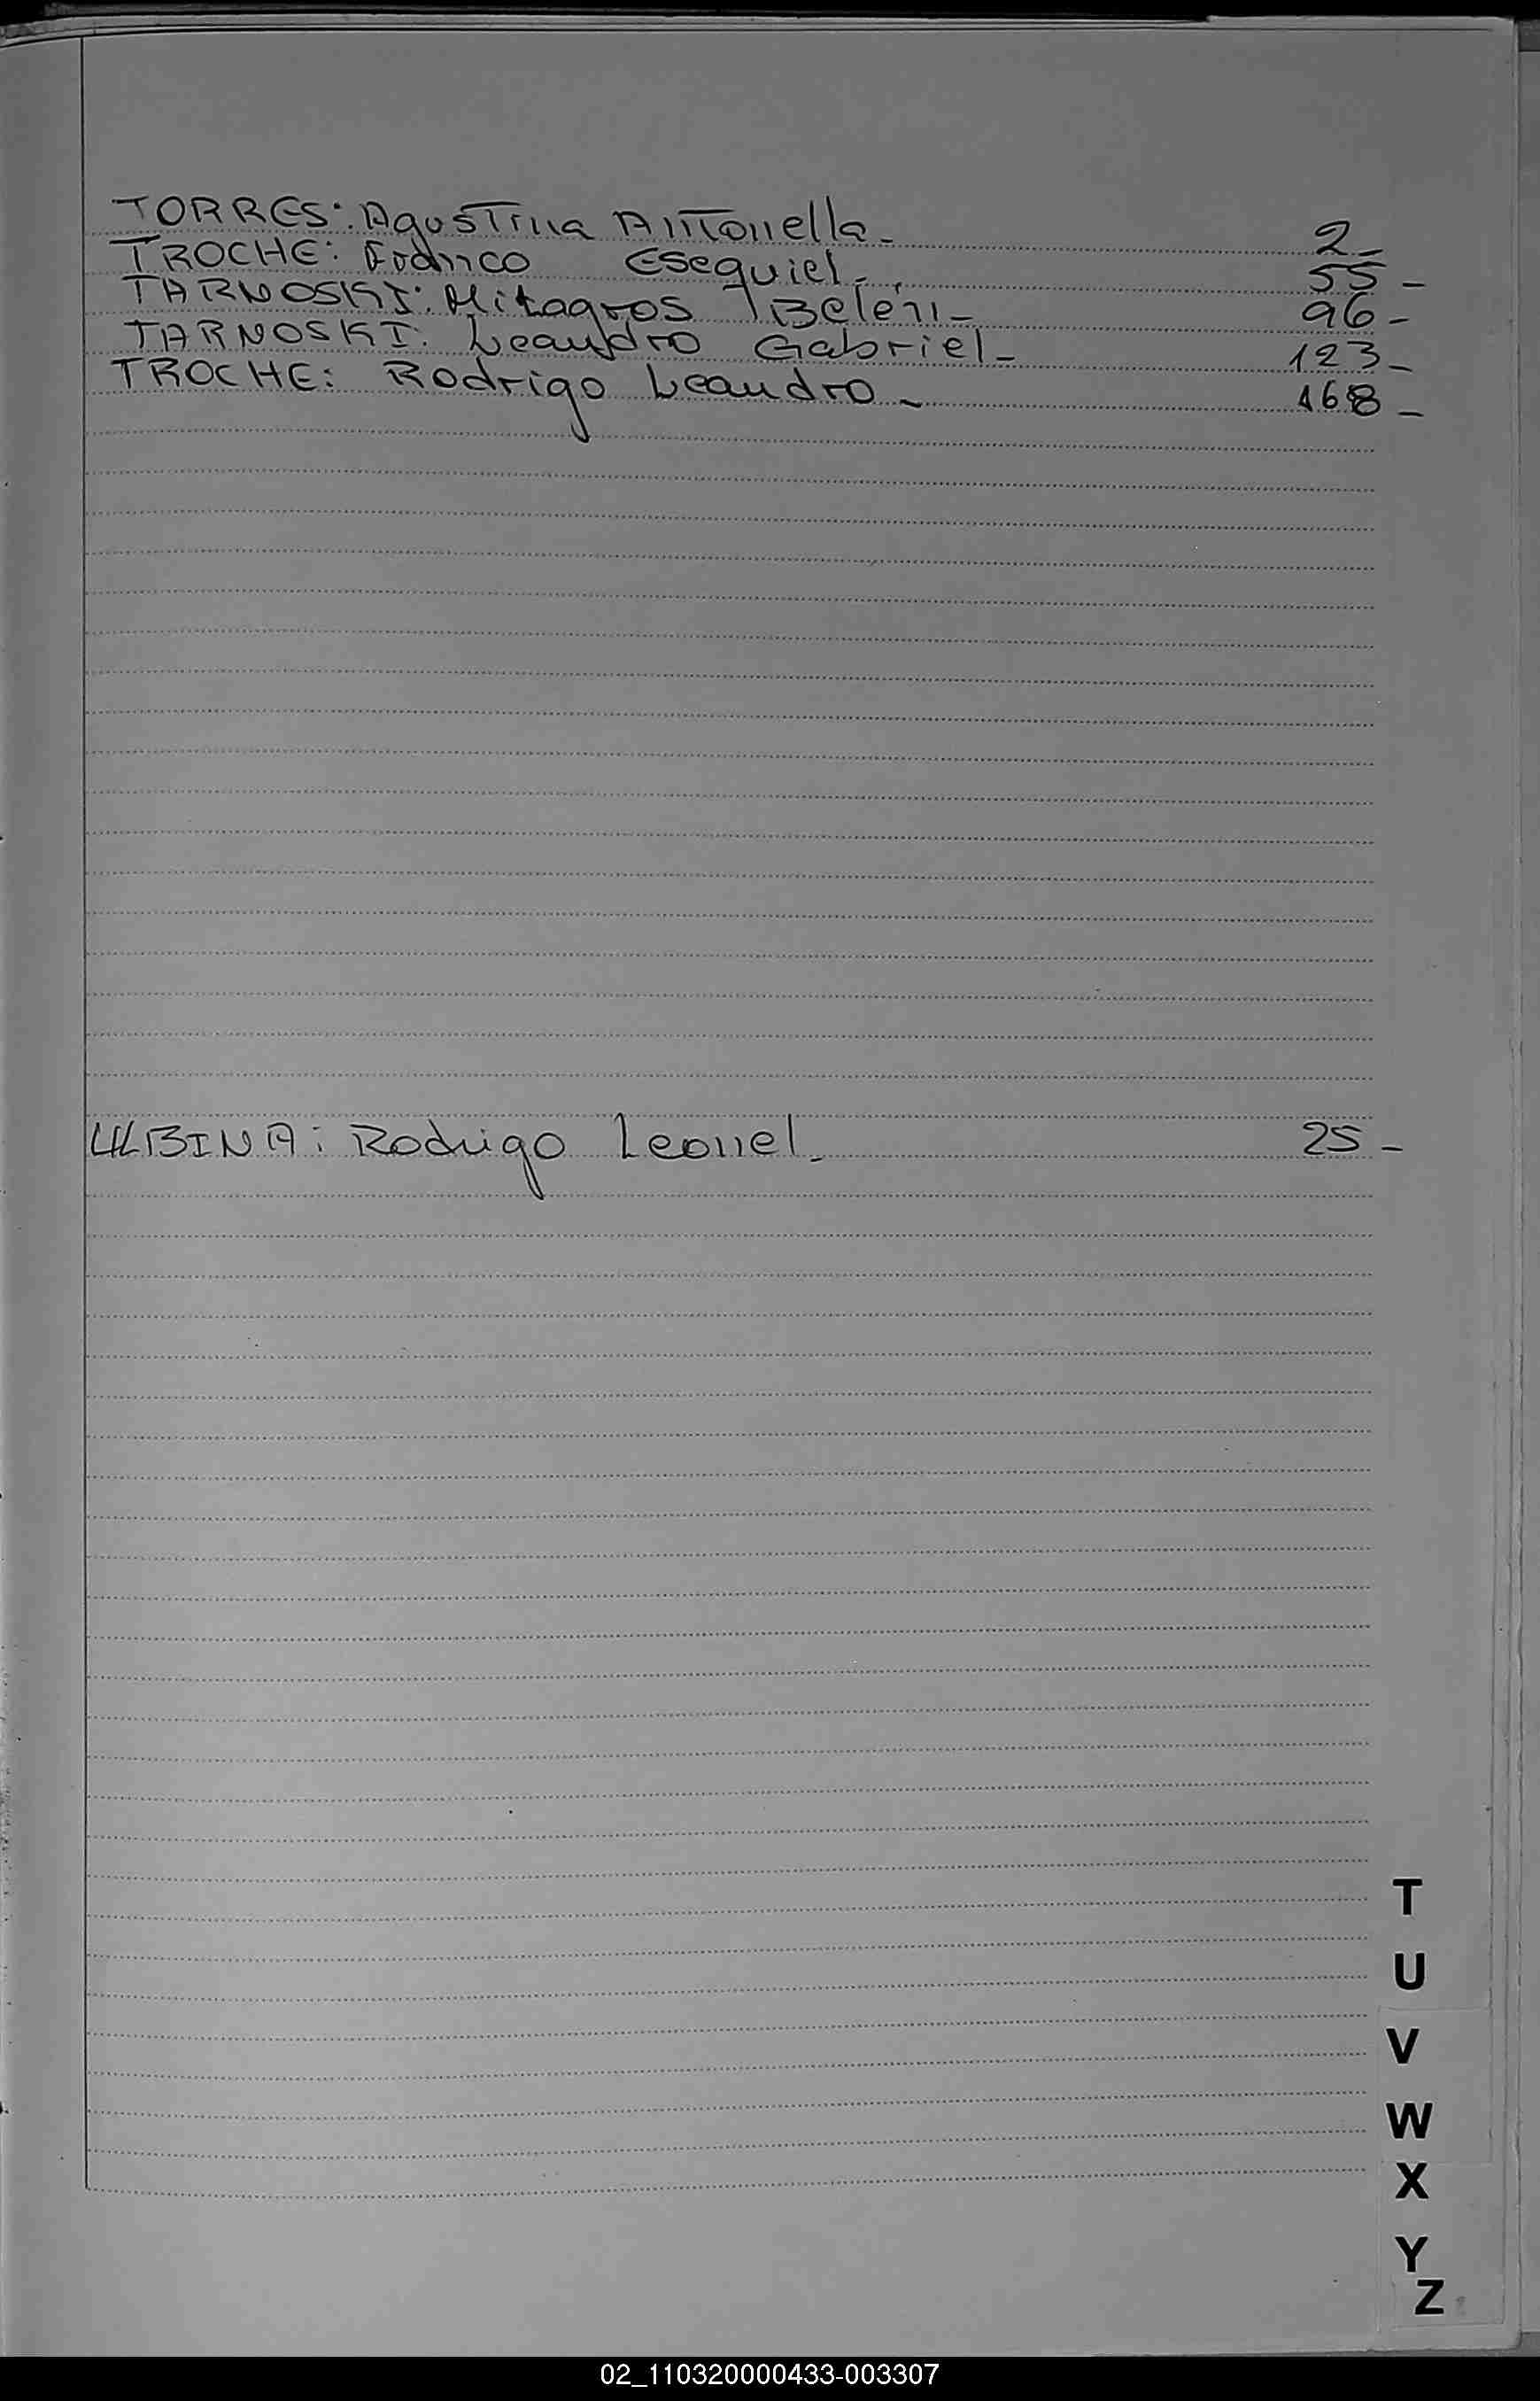 TORRES: Agustina Antonella - 2 -
TROCHE: Franco Esequiel - 55 -
TARNOSKI: Milagros Belén - 96 -
TARNOSKI: Leandro Gabriel - 123 -
TROCHE: Rodrigo Leandro - 168 -
ULBINA: Rodrigo Leonel - 25 -
T
U
V
W
X
Y
Z
02_110320000433-003307